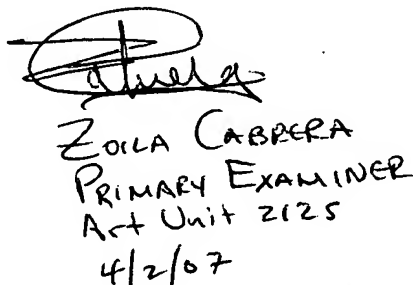 Zoila Cabrera
Primary Examiner
Art Unit 2125
4/2/07